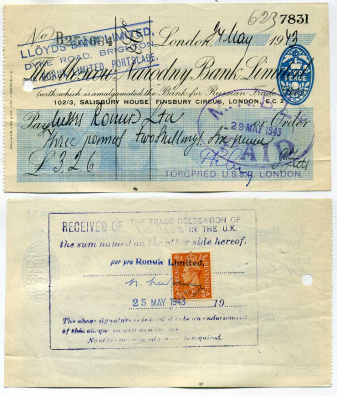 623 7831
No B25164
London, 24 May 1943
LLOYDS BANK LIMITED,
DYKE ROAD, BRIGHTON
RONUK LIMITED, PORTSLADE.
Moscow Narodny Bank, Limited
with which is amalgamated the Bank for Russian Trade
102/3, SALISBURY HOUSE, FINSBURY CIRCUS, LONDON, E.C.2
29 MAY 1943
PAID
Pay Messrs Ronuk Ltd or Order
Three pounds two shillings six pence
£3.2.6
TORGPRED U.S.S.R. LONDON.
RECEIVED OF THE TRADE DELEGATION OF
THE U.S.S.R. IN THE U.K.
the sum named on the other side hereof.
per pro Ronuk Limited.
25 MAY 1943 19
The above signature is intended to be an endorsement
of this cheque as well as a receipt.
No other receipt is required.